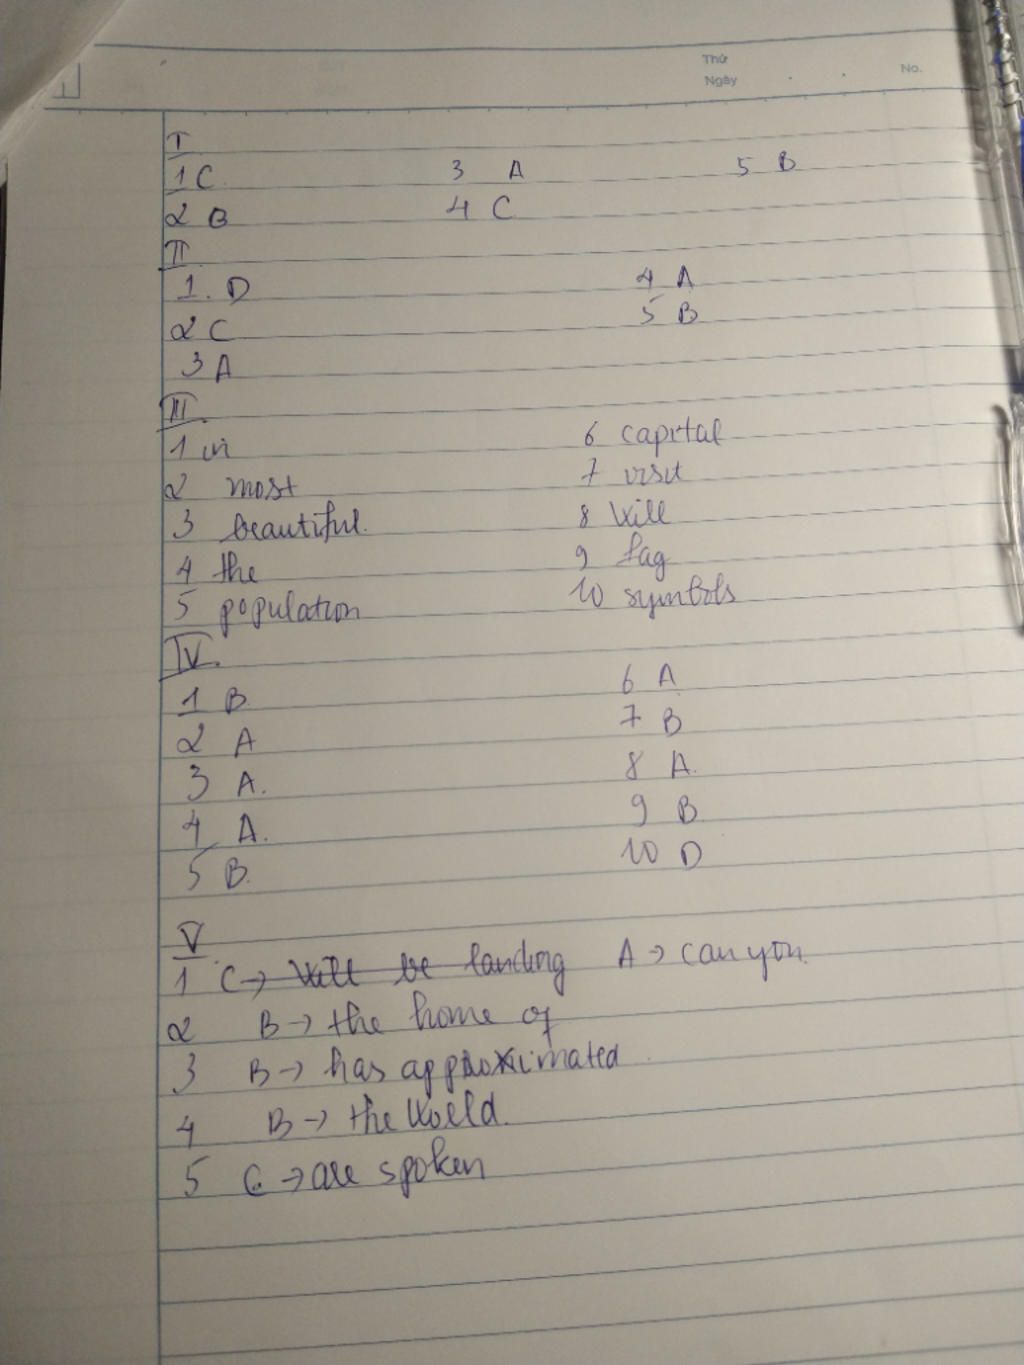 Thứ
Ngày No.
I
1 C 3 A 5 B
2 B 4 C
II
1. D 4 A
2 C 5 B
3 A
III.
1 in 6 capital
2 most 7 visit
3 beautiful. 8 will
4 the 9 fag
5 population 10 symbols
IV.
1 B 6 A
2 A 7 B
3 A. 8 A.
4 A. 9 B
5 B. 10 D
V
1 C → will be landing A → canyon.
2 B → the home of
3 B → has approximated
4 B → the world.
5 C → are spoken